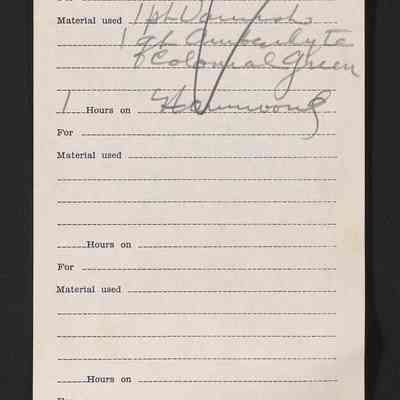 Material used 1 pt Varnish
1 qt Amberlyte
Colonial Green
1 Hours on
For
Material used
Hours on
For
Material used
Hours on